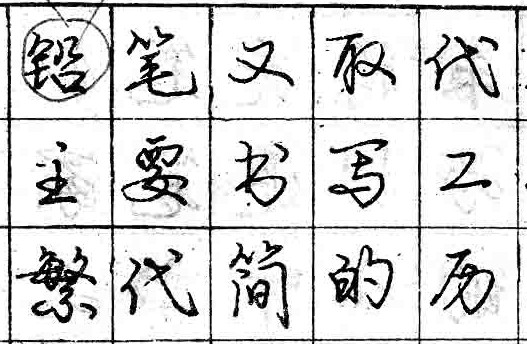 铅笔又取代
主要书写工
繁代简的历